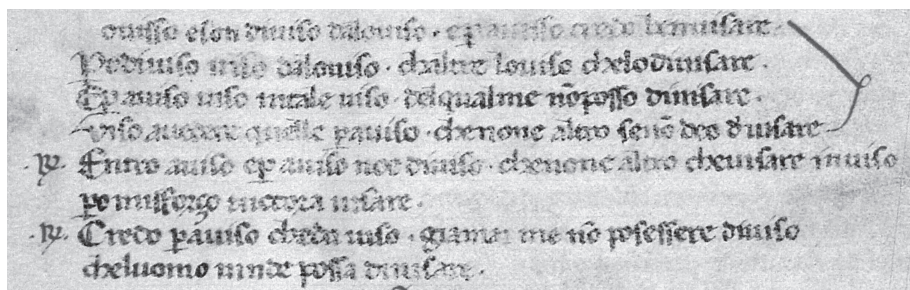 ouisso eson diuiso dalouiso · ep auisso credo benuisare
Podiuiso uiso dalouiso · chaltre louiso chelodiuisare ·
Ep auiso uiso intale uiso · delqualme nōposso diuisare ·
Viso auedere quelle pauiso · chenone altro senō deo diuisare
·R· Entro auiso ep auiso noe diuiso · chenone altro cheuisare inuiso
po misforço tuctora uisare ·
·R· Credo pauiso cheda uiso · giamai me nō posessere diuiso
cheluomo uinde possa diuisare ·